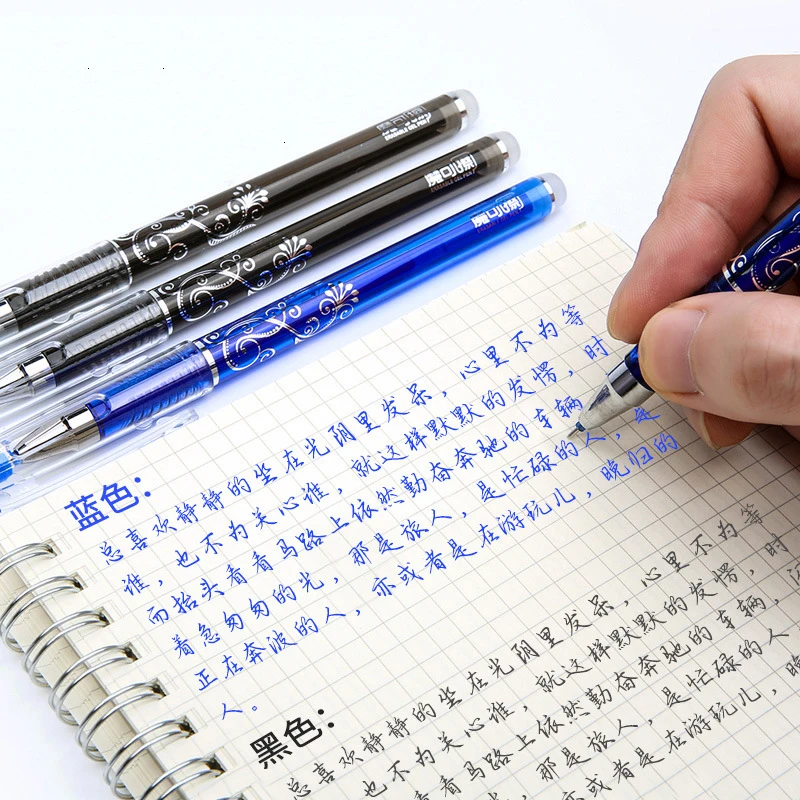 魔可擦
ERASABLE GEL PEN
魔可擦
ERASABLE GEL PEN
魔可擦
ERASABLE GEL PEN
蓝色：
总喜欢静静的坐在光阴里发呆，心里不为等
谁，也不为关心谁，就这样默默的发愣，时
而抬头看看马路上依然勤奋奔驰的车辆
着急匆匆的光，那是旅人，是忙碌的人，是
正在奔波的人，亦或者是在游玩儿，晚归的
人。
黑色：
总喜欢静静的坐在光阴里发呆，心里不为等
也不为关心谁，就这样默默的发愣，时
看看马路上依然勤奋奔驰的车辆，
那是旅人，是忙碌的人
亦或者是在游玩儿，晚